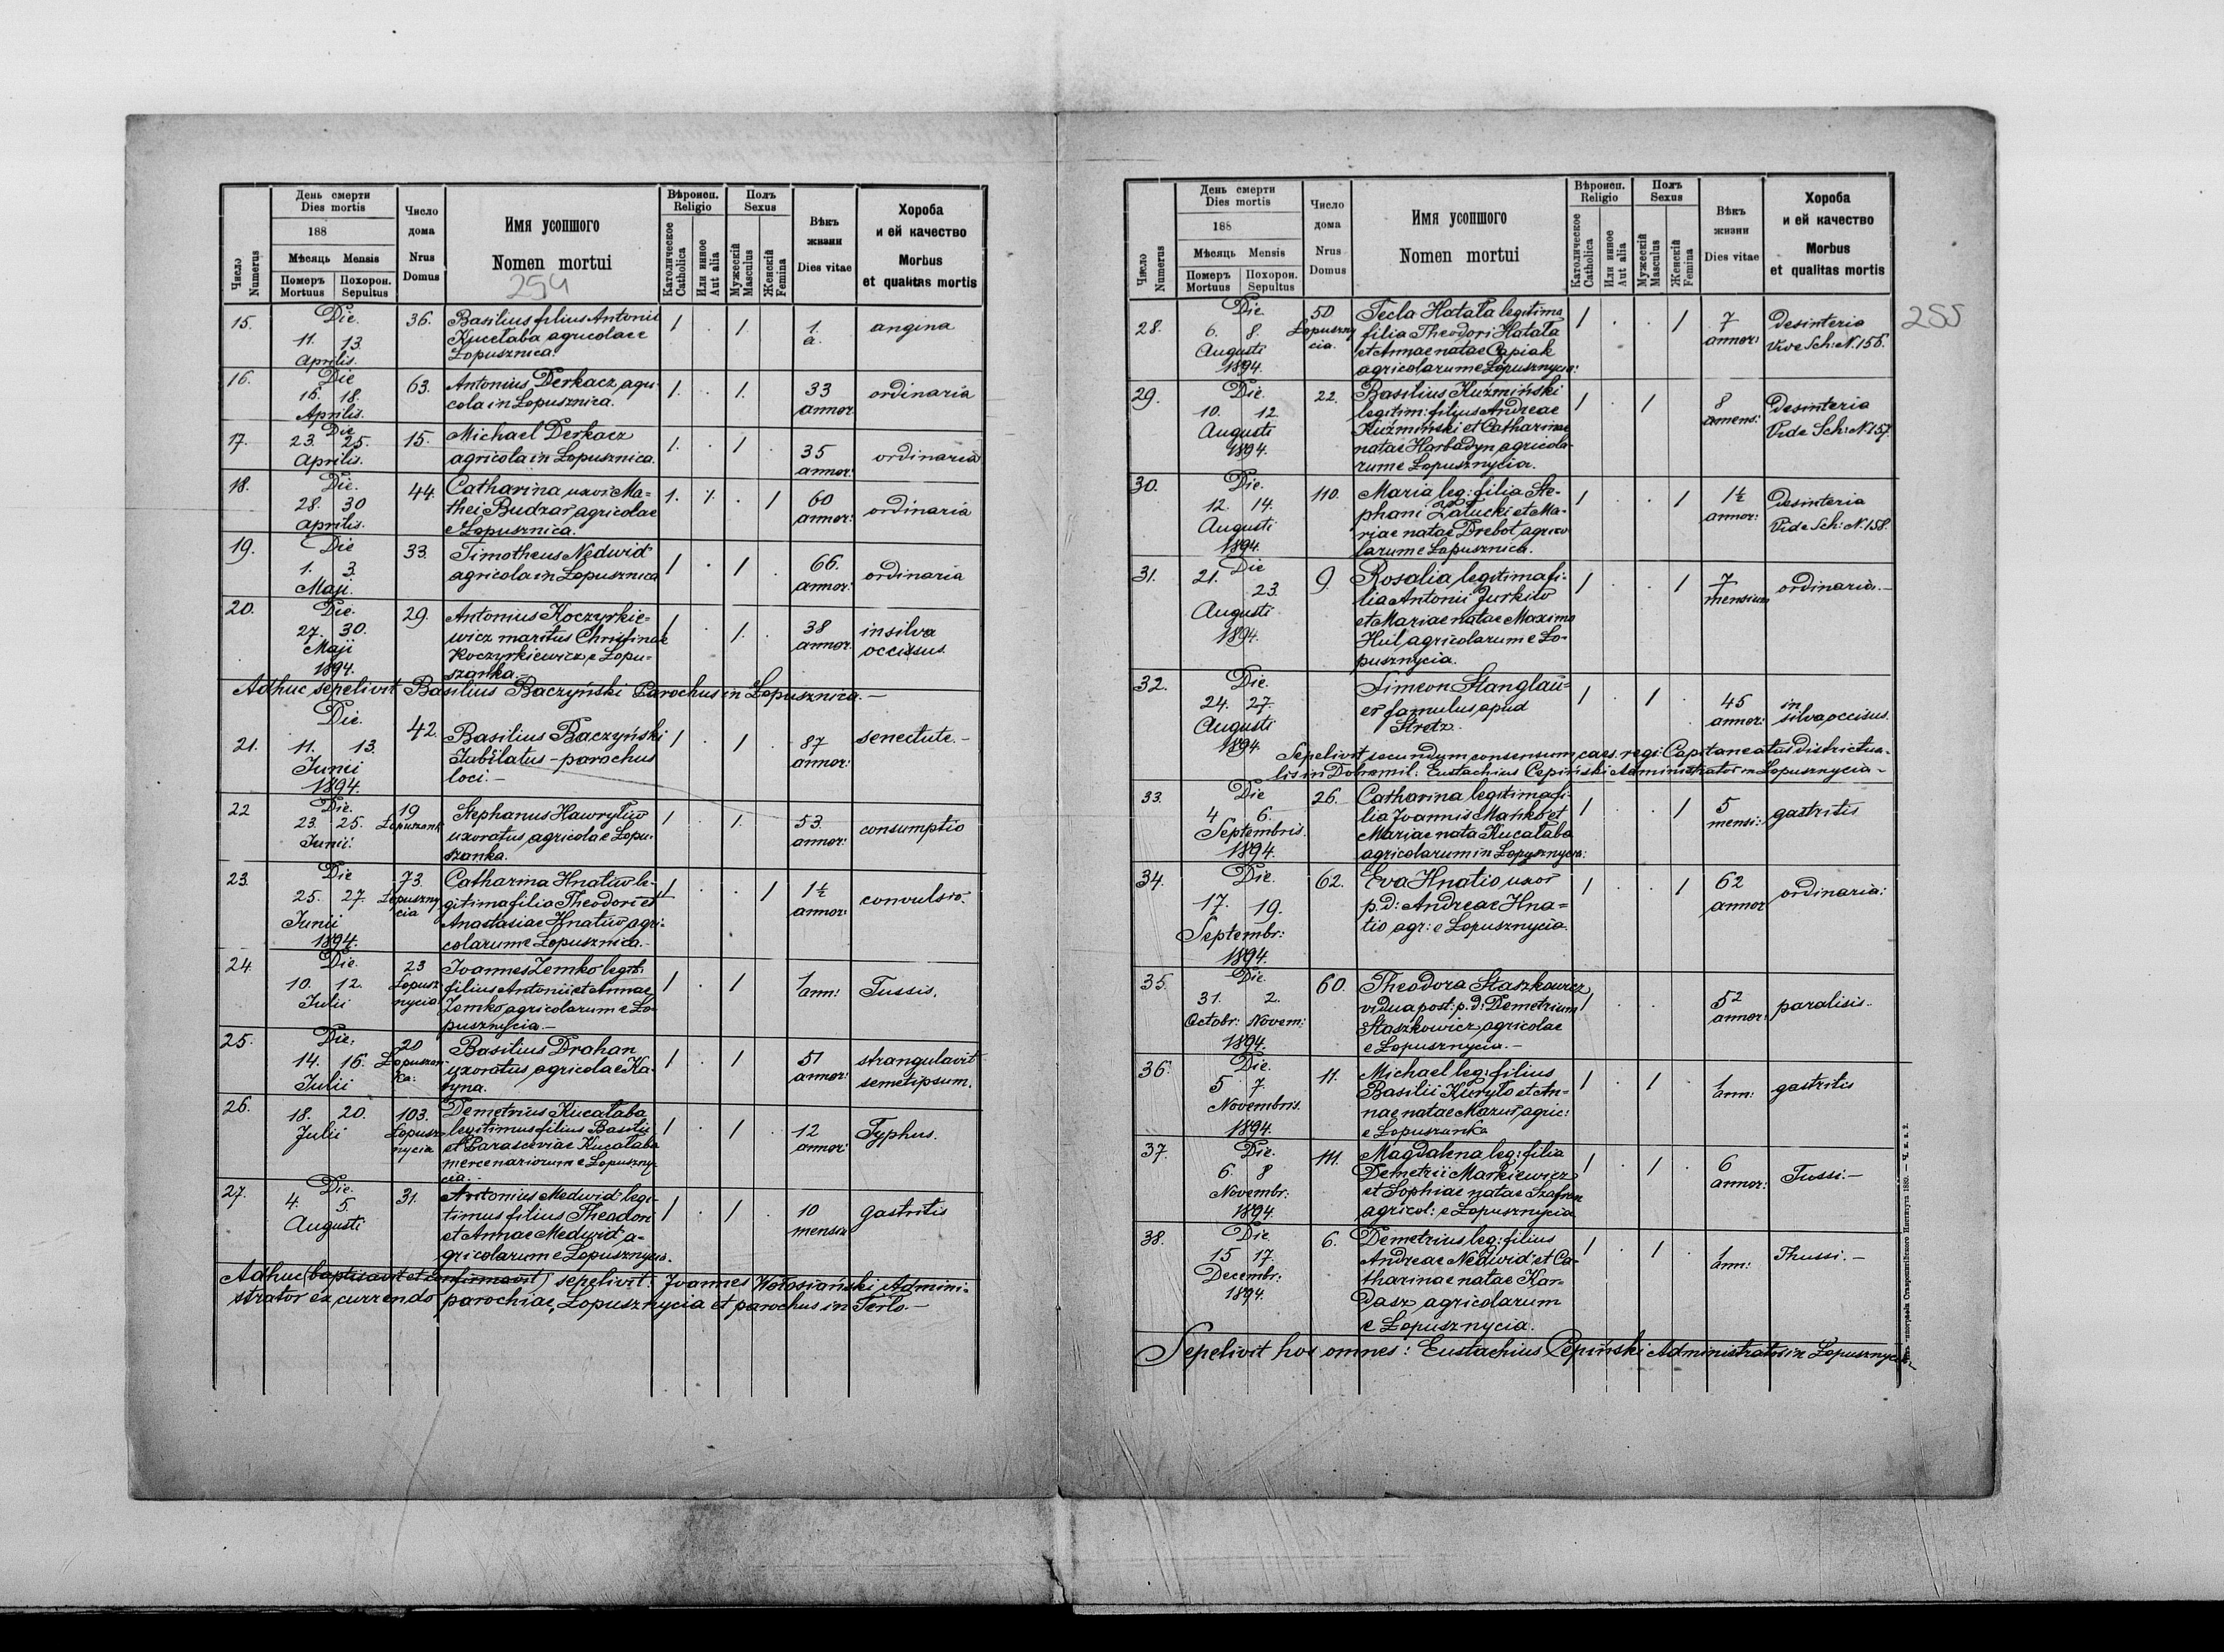 День смерти
Dies mortis
188
Мѣсяць Mensis
Число
Numerus
Померъ
Mortuus
Похорон.
Sepultus
Число
дома
Nrus
Domus
Имя усопшого
Nomen mortui
254
Вѣроисп.
Religio
Католическое
Catholica
Или инное
Aut alia
Полъ
Sexus
Мужескій
Masculus
Женскій
Femina
Вѣкъ
жизни
Dies vitae
Хороба
и ей качество
Morbus
et qualitas mortis
15. Die. 11. 13. Aprilis. 36. Basilius filius Antonii 1 . 1. 1. a. angina
Kucałaba agricolae e
Łopusznica.
16. Die 16. 18. Aprilis. 63. Antonius Derkacz, agri- 1. . 1. 33 annor ordinaria
cola in Łopusznica.
17. Die 23. 25. Aprilis. 15. Michael Derkacz 1. . 1 . 35 annor: ordinaria
agricola in Łopusznica.
18. Die. 28. 30 Aprilis. 44. Catharina uxor Ma= 1. . 1 60 annor: ordinaria
thei Budzar agricolae
e Łopusznica.
19. Die 1. 3. Maji. 33. Timotheus Nedwid 1 . 1 . 66. annor: ordinaria
agricola in Łopusznica
20. Die. 27. 30. Maji 1894. 29. Antonius Koczyrkie= 1 . 1. . 38 annor. in silva
wicz maritus Christinae occissus.
Koczyrkiewicz e Łopu=
szanka.
Adhuc sepelivit Basilius Baczyński Parochus in Łopusznica.—
21. Die. 11. 13. Junii 1894. 42. Basilius Baczyński 1 . 1 . 87 annor: senectute.—
Jubilatus - parochus
loci.—
22 Die. 23. 25. Junii: 19 Łopuszank Stephanus Hawryliw 1 . 1. 53. annor: consumptio
uxoratus, agricola e Łopu-
szanka.
23. Die 25. 27. Junii 1894. 73. Łopuszny cia Catharina Hnatiw le- 1 . . 1 1½ annor: convulsio.
gitima filia Theodori et
Anastasiae Hnatiw agri-
colarum e Łopusznica.—
24. Die. 10. 12. Julii 23 Łopusz nycia Joannes Zemko legit: 1 . 1 1 ann: Tussis.
filius Antonii et Annae
Zemko agricolarum e Ło-
pusznycia.—
25. Die: 14. 16. Julii 20 Łopuszan ka: Basilius Drahan 1 . 1 51 annor: strangulavit
uxoratus, agricola e Ka- semetipsum.
tyna.
26. 18. 20. Julii 103. Łopusz nycia Demetrius Kucałaba 1 . 1 . 12 annor: Typhus.
legitimus filius Basilii
et Parasceviae Kucałaba
mercenariorum e Łopuszny-
cia.
27. Die. 4. 5. Augusti 31. Antonius Medwid legi- 1 . 1 . 10 mensiu gastritis
timus filius Theodori
et Annae Medwid a-
gricolarum e Łopusznycia.
Adhuc (baptisavit et confirmavit) sepelivit: Joannes Wołosiański Admini-
strator ex currendo parochiae, Łopusznycia et parochus in Terło.—
День смерти
Dies mortis
188
Мѣсяць Mensis
Число
Numerus
Померъ
Mortuus
Похорон.
Sepultus
Число
дома
Nrus
Domus
Имя усопшого
Nomen mortui
Вѣроисп.
Religio
Католическое
Catholica
Или инное
Aut alia
Полъ
Sexus
Мужескій
Masculus
Женскій
Femina
Вѣкъ
жизни
Dies vitae
Хороба
и ей качество
Morbus
et qualitas mortis
255
28. Die 6. 8. Augusti 1894. 50 Łopuszny cia. Tecla Hatala legitima 1 . . 1 7 annor: Desinteria
filia Theodori Hatala Vive Sch: N. 156.
et Annae natae Capiak
agricolarum e Łopusznycia:
29. Die. 10. 12. Augusti 1894. 22. Basilius Kuźmiński 1 . 1 8 mens: Desinteria
legitim: filius Andreae Vide Sch: N. 157
Kuźmiński et Catharinae
natae Harbadyn agricola-
rum e Łopusznycia.
30. Die. 12. 14. Augusti 1894. 110. Maria leg: filia Ste- 1 . . 1 1½ annor: Desinteria
phani Załucki et Ma- Vide Sch: N. 158.
riae natae Drebot agrico
larum e Łopusznica.
31. Die 21. 23. Augusti 1894. 9. Rosalia legitima fi- 1 . . 1 7 mensium ordinaria.—
lia Antonii Jurkiw
et Mariae natae Maxime
Hul agricolarum e Ło-
pusznycia.
32. Die. 24. 27. Augusti 1894. Simeon Stanglau= 1 . 1 . 45 annor: in
er famulus apud silva occisus.
Stretz.
Sepelivit secundum consensum caes. regi: Capitaneatus districtua-
lis in Dobromil: Eustachius Cepiński Administrator in Łopusznycia—
33. Die 4 6. Septembris. 1894. 26. Catharina legitima fi- 1 . . 1 5 mensi: gastritis
lia Joannis Mańko et
Mariae nata Kucałaba
agricolarum in Łopusznycia:
34. Die. 17. 19. Septembr: 1894. 62. Eva Hnatio uxor 1 . . 1 62 annor ordinaria:
p. d: Andreae Hna=
tio agr: e Łopusznycia.
35. Die. 31. 2. Octobr: Novem: 1894. 60. Theodora Staszkowicz 1 . . 52 annor: paralisis.
vidua post: p. d: Demetrium
Staszkowicz, agricolae
e Łopusznycia.—
36. Die. 5 7. Novembris. 1894. 11. Michael leg: filius 1 . 1 . 1 ann: gastritis
Basilii Kuryło et An-
nae natae Mazur, agric:
e Łopuszanka
37. Die. 6. 8 Novembr: 1894. 111. Magdalena leg: filia 1 . 1 . 6 annor: Tussi.—
Demetrii Markiewicz
et Sophiae natae Szafran
agricol: e Łopusznycia
38. Die. 15 17 Decembr: 1894. 6. Demetrius leg: filius 1 . 1 . 1 ann: Thussi.—
Andreae Nedwid et Ca-
tharinae natae Kar=
dasz agricolarum
e Łopusznycia.
Sepelivit hos omnes: Eustachius Cepiński Administrator in Łopusznycia—